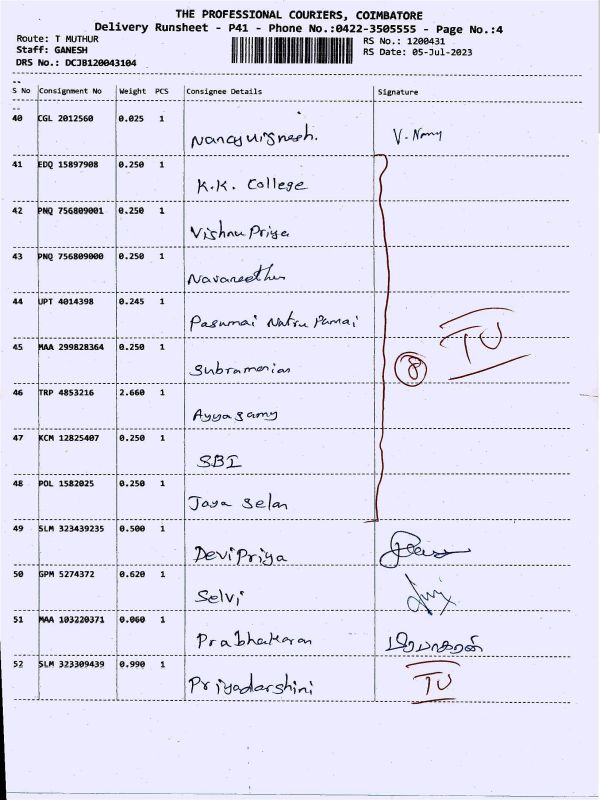 THE PROFESSIONAL COURIERS, COIMBATORE
Delivery Runsheet - P41 - Phone No.:0422-3505555 - Page No.:4
Route: T MUTHUR RS No.: 1200431
Staff: GANESH RS Date: 05-Jul-2023
DRS No.: DCJB120043104
S No Consignment No Weight PCS Consignee Details Signature
40 CGL 2012560 0.025 1 Nancy Vignesh. V. Nancy
41 EDQ 15897908 0.250 1 K.K. College
42 PNQ 756809001 0.250 1 Vishnu Priya
43 PNQ 756809000 0.250 1 Navaneetha
44 UPT 4014398 0.245 1 Pasumai Natru Pannai
TU
45 MAA 299828364 0.250 1 Subramanian 8
46 TRP 4853216 2.660 1 Ayyasamy
47 KCM 12825407 0.250 1 SBI
48 POL 1582025 0.250 1 Jaya Selan
49 SLM 323439235 0.500 1 Devi Priya
50 GPM 5274372 0.620 1 Selvi
51 MAA 103220371 0.060 1 Prabhakaran பிரபாகரன்
52 SLM 323309439 0.990 1 Priyadarshini TU